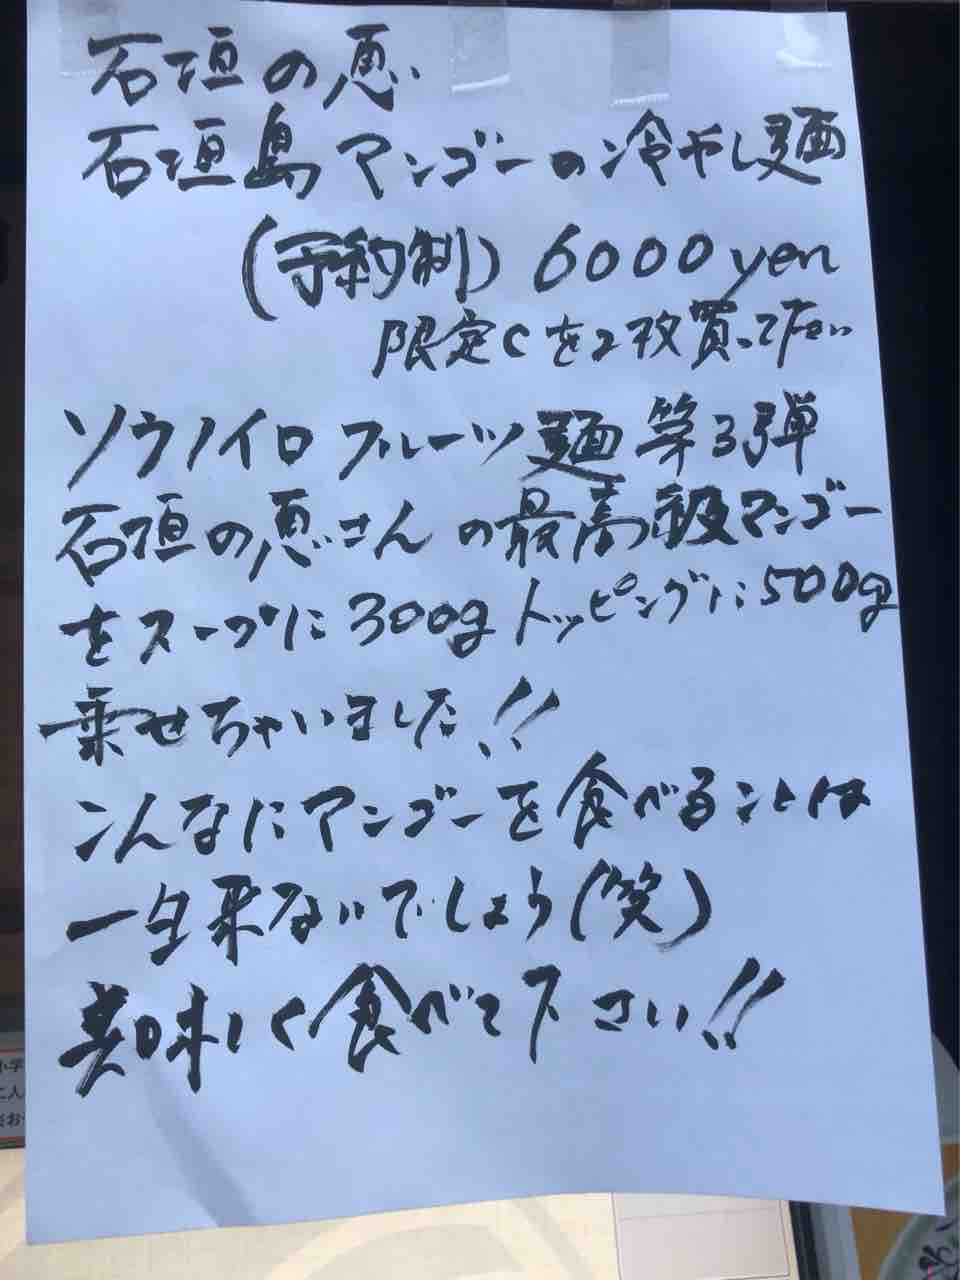 石垣の恵
石垣島マンゴーの冷やし麺
(予約制) 6000yen
限定Cを2枚買って下さい
ソウノイロ フルーツ麺 第3弾
石垣の恵さんの最高級マンゴー
をスープに300gトッピングに500g
乗せちゃいました!!
こんなにマンゴーを食べることは
一生来ないでしょう(笑)
美味しく食べて下さい!!
小学
に人
※お